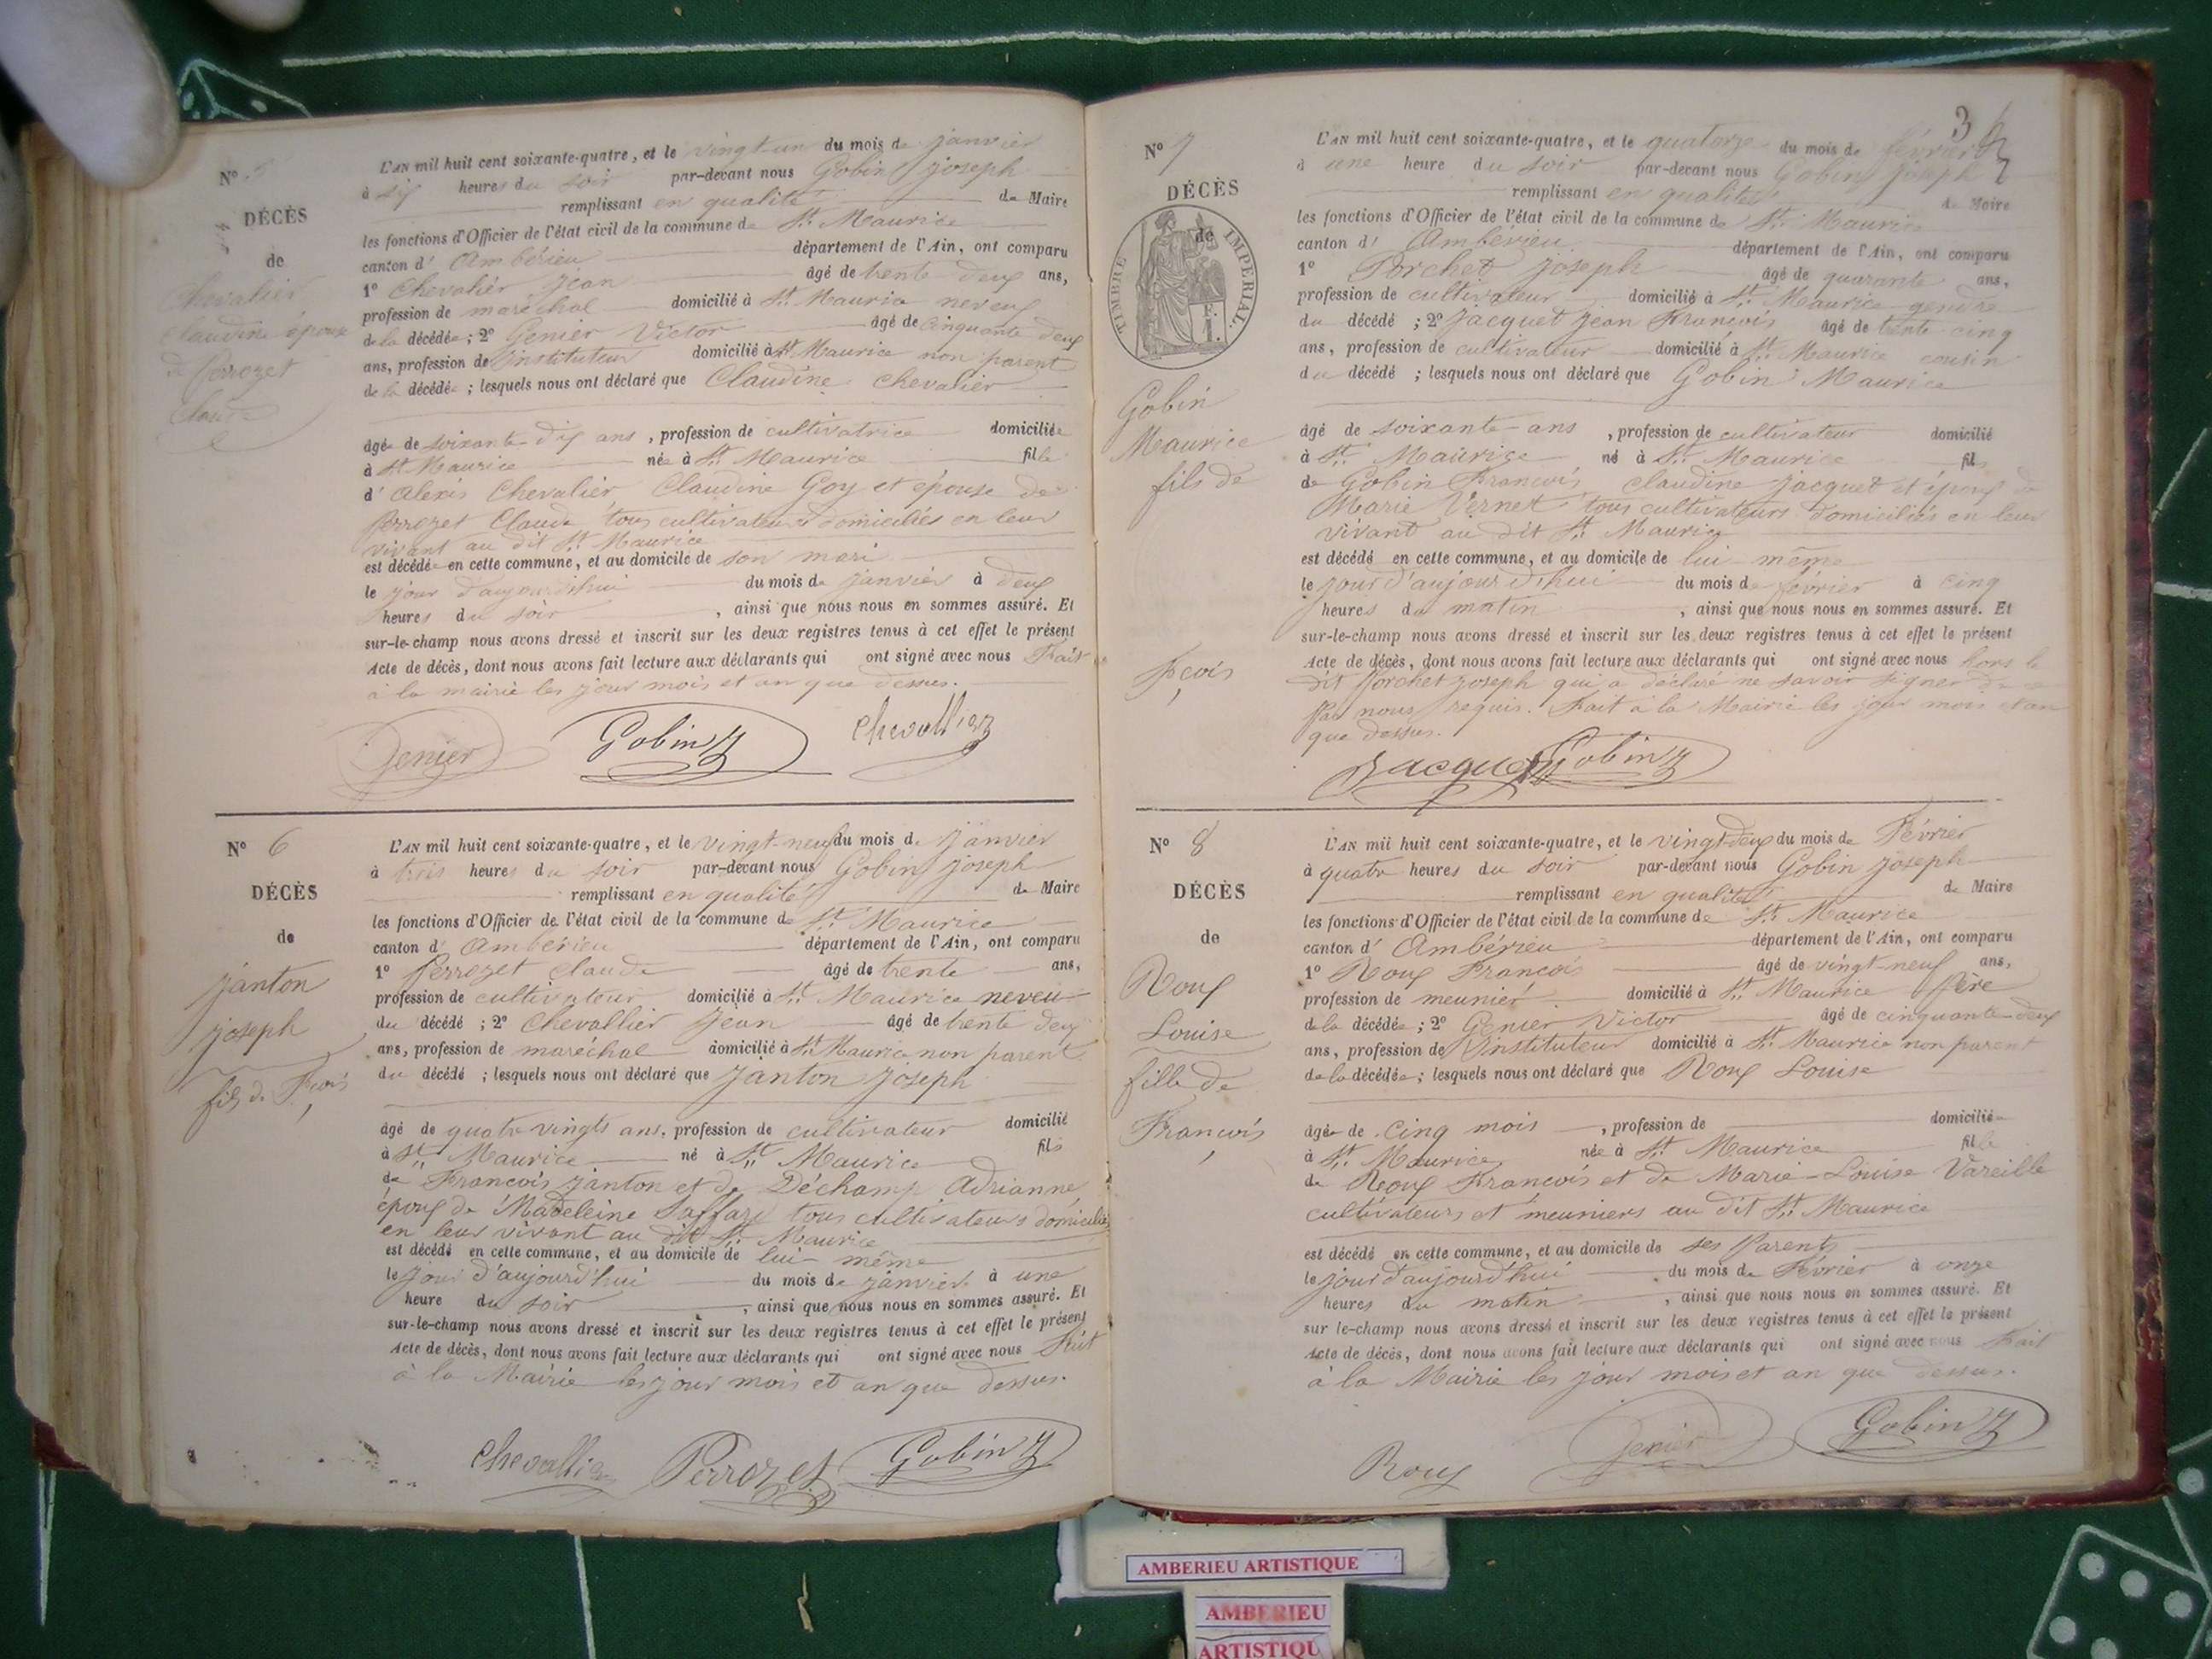 N° 5
DÉCÈS
de
Chevalier
Claudine épouse
de Perrozet
Claude
L'AN mil huit cent soixante-quatre, et le vingt-un du mois de janvier
à six heures du soir par-devant nous Gobin Joseph
remplissant en qualité de Maire
les fonctions d'Officier de l'état civil de la commune de St. Maurice
canton d' Ambérieu département de l'Ain, ont comparu
1° Chevalier Jean âgé de trente deux ans,
profession de maréchal domicilié à St. Maurice neveu
de la décédée ; 2° Genier Victor âgé de cinquante deux
ans, profession de Instituteur domicilié à St Maurice non parent
de la décédée ; lesquels nous ont déclaré que Claudine Chevalier
âgée de soixante dix ans , profession de cultivatrice domiciliée
à St Maurice née à St. Maurice fille
d' Alexis Chevalier, Claudine Goy et épouse de
Perrozet Claude, tous cultivateurs domiciliés en leur
vivant au dit St. Maurice
est décédée en cette commune, et au domicile de son mari
le jour d'aujourd'hui du mois de janvier à deux
heures du soir , ainsi que nous nous en sommes assuré. Et
sur-le-champ nous avons dressé et inscrit sur les deux registres tenus à cet effet le présent
Acte de décès, dont nous avons fait lecture aux déclarants qui ont signé avec nous Fait
à la mairie les jour mois et an que dessus.
Genier Gobin J Chevallier
N° 6
DÉCÈS
de
Janton
joseph
fils de Fçois
L'AN mil huit cent soixante-quatre, et le vingt-neuf du mois de janvier
à trois heures du soir par-devant nous Gobin Joseph
remplissant en qualité de Maire
les fonctions d'Officier de l'état civil de la commune de St. Maurice
canton d' Ambérieu département de l'Ain, ont comparu
1° Perrozet Claude âgé de trente ans,
profession de cultivateur domicilié à St. Maurice neveu
du décédé ; 2° Chevallier Jean âgé de trente deux
ans, profession de maréchal domicilié à St. Maurice non parent
du décédé ; lesquels nous ont déclaré que Janton Joseph
âgé de quatre vingts ans, profession de cultivateur domicilié
à St. Maurice né à St. Maurice fils
de François Janton et de Déchamp Adrianne,
époux de Madeleine Saffary tous cultivateurs domiciliés
en leur vivant au dit St. Maurice
est décédé en cette commune, et au domicile de lui-même
le jour d'aujourd'hui du mois de janvier à une
heure du soir , ainsi que nous nous en sommes assuré. Et
sur-le-champ nous avons dressé et inscrit sur les deux registres tenus à cet effet le présent
Acte de décès, dont nous avons fait lecture aux déclarants qui ont signé avec nous Fait
à la Mairie les jour mois et an que dessus.
Chevallier Perrozet Gobin J
3
N° 7
DÉCÈS
de
TIMBRE IMPERIAL.
Gobin
Maurice
fils de
Fçois
L'AN mil huit cent soixante-quatre, et le quatorze du mois de février
à une heure du soir par-devant nous Gobin Joseph
remplissant en qualité de Maire
les fonctions d'Officier de l'état civil de la commune de St. Maurice
canton d' Ambérieu département de l'Ain, ont comparu
1° Porchet Joseph âgé de quarante ans,
profession de cultivateur domicilié à St. Maurice gendre
du décédé ; 2° Jacquet Jean François âgé de trente-cinq
ans, profession de cultivateur domicilié à St. Maurice cousin
du décédé ; lesquels nous ont déclaré que Gobin Maurice
âgé de soixante ans , profession de cultivateur domicilié
à St. Maurice né à St. Maurice fils
de Gobin François, Claudine Jacquet et époux de
Marie Vernet tous cultivateurs domiciliés en leur
vivant au dit St. Maurice
est décédé en cette commune, et au domicile de lui-même
le jour d'aujourd'hui du mois de février à cinq
heures du matin , ainsi que nous nous en sommes assuré. Et
sur-le-champ nous avons dressé et inscrit sur les deux registres tenus à cet effet le présent
Acte de décès, dont nous avons fait lecture aux déclarants qui ont signé avec nous hors le
dit Porchet Joseph qui a déclaré ne savoir signer de ce
par nous requis. Fait à la Mairie les jour mois et an
que dessus.
Jacquet Gobin J
N° 8
DÉCÈS
de
Roux
Louise
fille de
François
L'AN mil huit cent soixante-quatre, et le vingt-deux du mois de Février
à quatre heures du soir par-devant nous Gobin Joseph
remplissant en qualité de Maire
les fonctions d'Officier de l'état civil de la commune de St. Maurice
canton d' Ambérieu département de l'Ain, ont comparu
1° Roux François âgé de vingt-neuf ans,
profession de meunier domicilié à St. Maurice Père
de la décédée ; 2° Genier Victor âgé de cinquante-deux
ans, profession de Instituteur domicilié à St. Maurice non parent
de la décédée ; lesquels nous ont déclaré que Roux Louise
âgée de cinq mois , profession de domiciliée
à St. Maurice née à St. Maurice fille
de Roux François et de Marie-Louise Vareille
cultivateurs et meuniers au dit St. Maurice
est décédé en cette commune, et au domicile de ses Parents
le jour d'aujourd'hui du mois de Février à onze
heures du matin , ainsi que nous nous en sommes assuré. Et
sur le-champ nous avons dressé et inscrit sur les deux registres tenus à cet effet le présent
Acte de décès, dont nous avons fait lecture aux déclarants qui ont signé avec nous Fait
à la Mairie les jour mois et an que dessus.
Roux Genier Gobin J
AMBERIEU ARTISTIQUE
AMBERIEU
ARTISTIQU